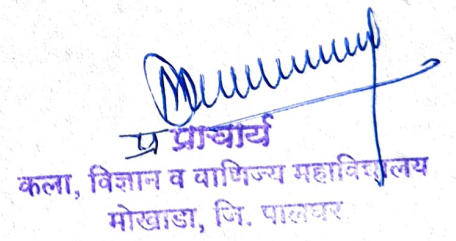 प्र प्राचार्य
कला, विज्ञान व वाणिज्य महाविद्यालय
मोखाडा, जि. पालघर